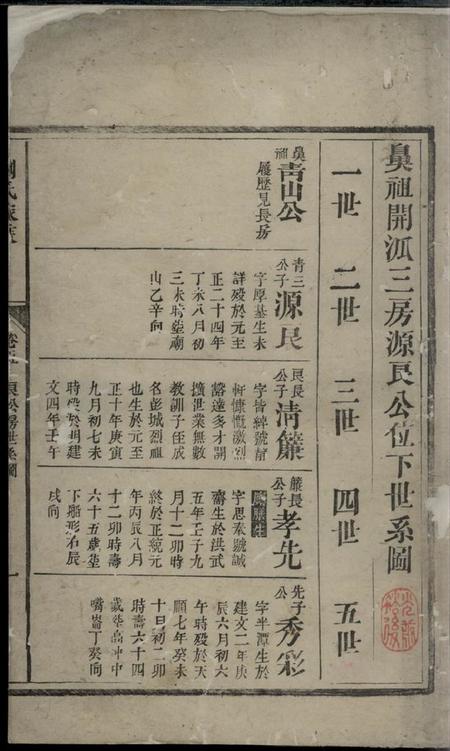 鼻祖開派三房源民公位下世系圖
一世
二世
三世
四世
五世
鼻祖
青山公
履歷見長房
青三
公子
源民
字厚基生未
詳歿於元至
正二十四年
丁未八月初
三未時塟廟
山乙辛向
民長
公子
清簾
字皆
慷慨激烈
豁達多才開
擴世業無數
教訓子侄成
名彭城烈祖
也生於元至
正十年庚寅
九月初七未
時歿於明建
文四年壬午
簾長
公子
孝先
字思泰號誠
齋生於洪武
五年壬子九
月十二卯時
終於正統元
年丙辰八月
十二卯時壽
六十五歲塟
下 形石辰
戌向
先子
公
秀彩
字半潭生於
建文二年庚
辰六月初六
午時歿於天
順七年癸未
十月初二卯
時壽六十四
歲塟高冲中
嘴崙丁癸向